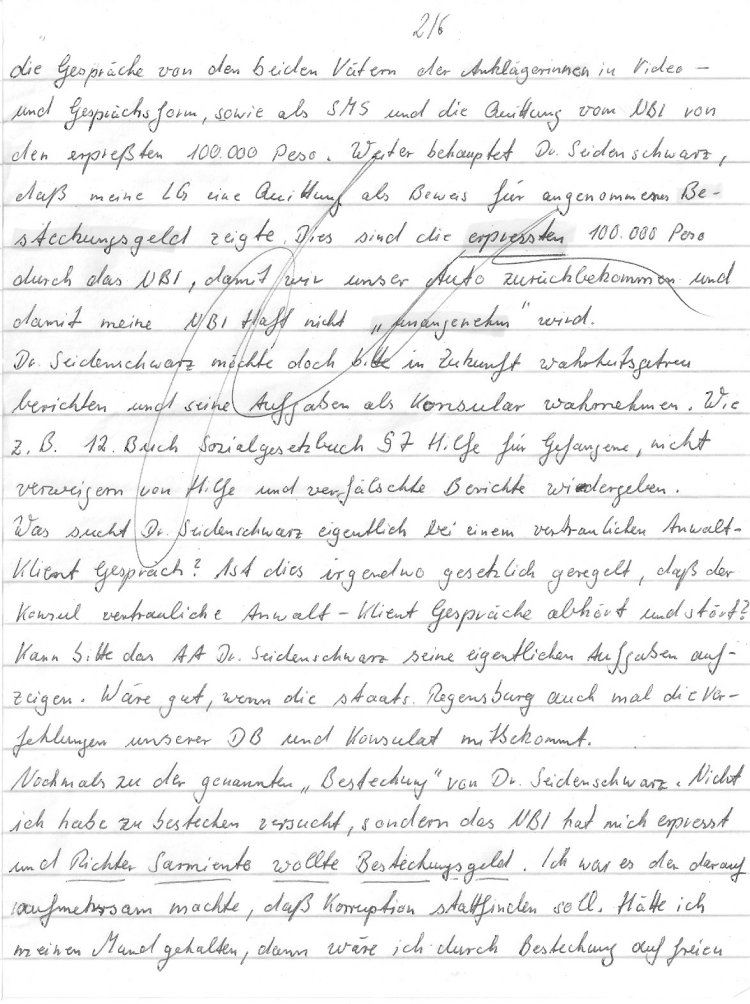 2/6
die Gespräche von den beiden Vätern der Anklägerinnen in Video-
und Gesprächsform, sowie als SMS und die Quittung vom NBI von
den erpreßten 100.000 Peso. Weiter behauptet Dr. Seidenschwarz,
daß meine LG eine Quittung als Beweis für angenommenes Be-
steckungsgeld zeigte. Dies sind die erpressten 100.000 Peso
durch das NBI, damit wir unser Auto zurückbekommen und
damit meine NBI Haft nicht „unangenehm" wird.
Dr. Seidenschwarz möchte doch bitte in Zukunft wahrheitsgetreu
berichten und seine Aufgaben als Konsular wahrnehmen. Wie
z. B. 12. Buch Sozialgesetzbuch §7 Hilfe für Gefangene, nicht
verweigern von Hilfe und verfälschte Berichte wiedergeben.
Was sucht Dr. Seidenschwarz eigentlich bei einem vertraulichen Anwalt-
Klient Gespräch? Ist dies irgendwo gesetzlich geregelt, daß der
Konsul vertrauliche Anwalt-Klient Gespräche abhört und stört?
Kann bitte das AA Dr. Seidenschwarz seine eigentlichen Aufgaben auf-
zeigen. Wäre gut, wenn die staats. Regensburg auch mal die Ver-
fehlungen unserer DB und Konsulat mitbekommt.
Nochmals zu der genannten „Bestechung" von Dr. Seidenschwarz. Nicht
ich habe zu bestechen versucht, sondern das NBI hat mich erpresst
und Richter Sarmiento wollte Bestechungsgeld. Ich war es der darauf
aufmerksam machte, daß Korruption stattfinden soll. Hätte ich
meinen Mund gehalten, dann wäre ich durch Bestechung auf freien